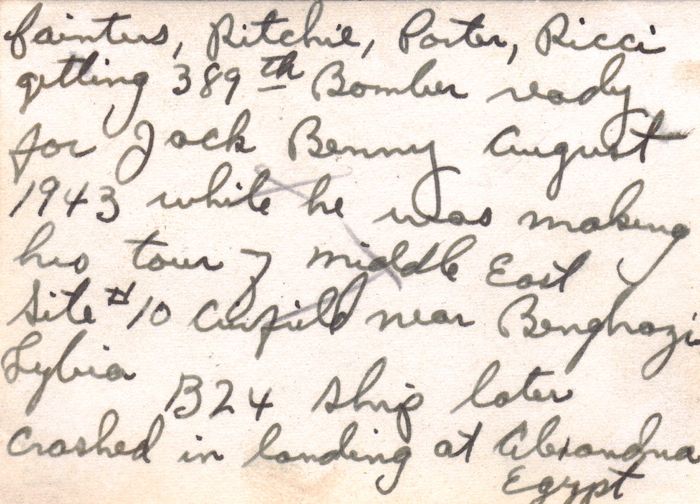 Painters, Ritchie, Porter, Ricci
getting 389th Bomber ready
for Jack Benny August
1943 while he was making
his tour of Middle East
Site #10 Airfield near Benghazi
Lybia
B24 ship later
crashed in landing at Alexandria
Egypt